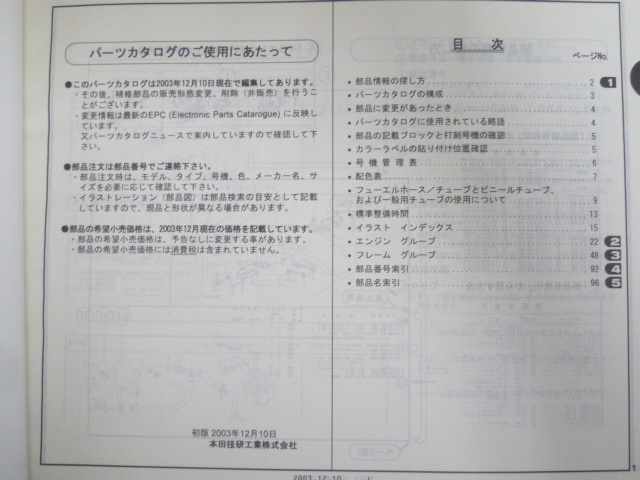 パーツカタログのご使用にあたって
●このパーツカタログは2003年12月10日現在で編集してあります。
・その後、補修部品の販売形態変更、削除（非販売）を行うこ
とがございます。
・変更情報は最新のEPC (Electronic Parts Catarogue) に反映し
ています。
又パーツカタログニュースで案内していますので確認して下
さい。
●部品注文は部品番号でご連絡下さい。
・部品注文時は、モデル、タイプ、号機、色、メーカー名、サ
イズを必要に応じて確認して下さい。
・イラストレーション（部品図）は部品検索の目安として記載
していますので、現品と形状が異なる場合があります。
●部品の希望小売価格は、2003年12月現在の価格を記載しています。
・部品の希望小売価格は、予告なしに変更する事があります。
・部品の希望小売価格には消費税は含まれていません。
初版 2003年12月10日
本田技研工業株式会社
目 次
ページNo.
・部品情報の探し方 2 1
・パーツカタログの構成 3
・部品に変更があったとき 4
・パーツカタログに使用されている略語 4
・部品の記載ブロックと打刻号機の確認 5
・カラーラベルの貼り付け位置確認 5
・号 機 管 理 表 6
・配色表 7
・フューエルホース／チューブとビニールチューブ、
および一般用チューブの使用について 9
・標準整備時間 13
・イラスト インデックス 15
・エンジン グループ 22 2
・フレーム グループ 48 3
・部品番号索引 92 4
・部品名索引 96 5
2003.12.10
1